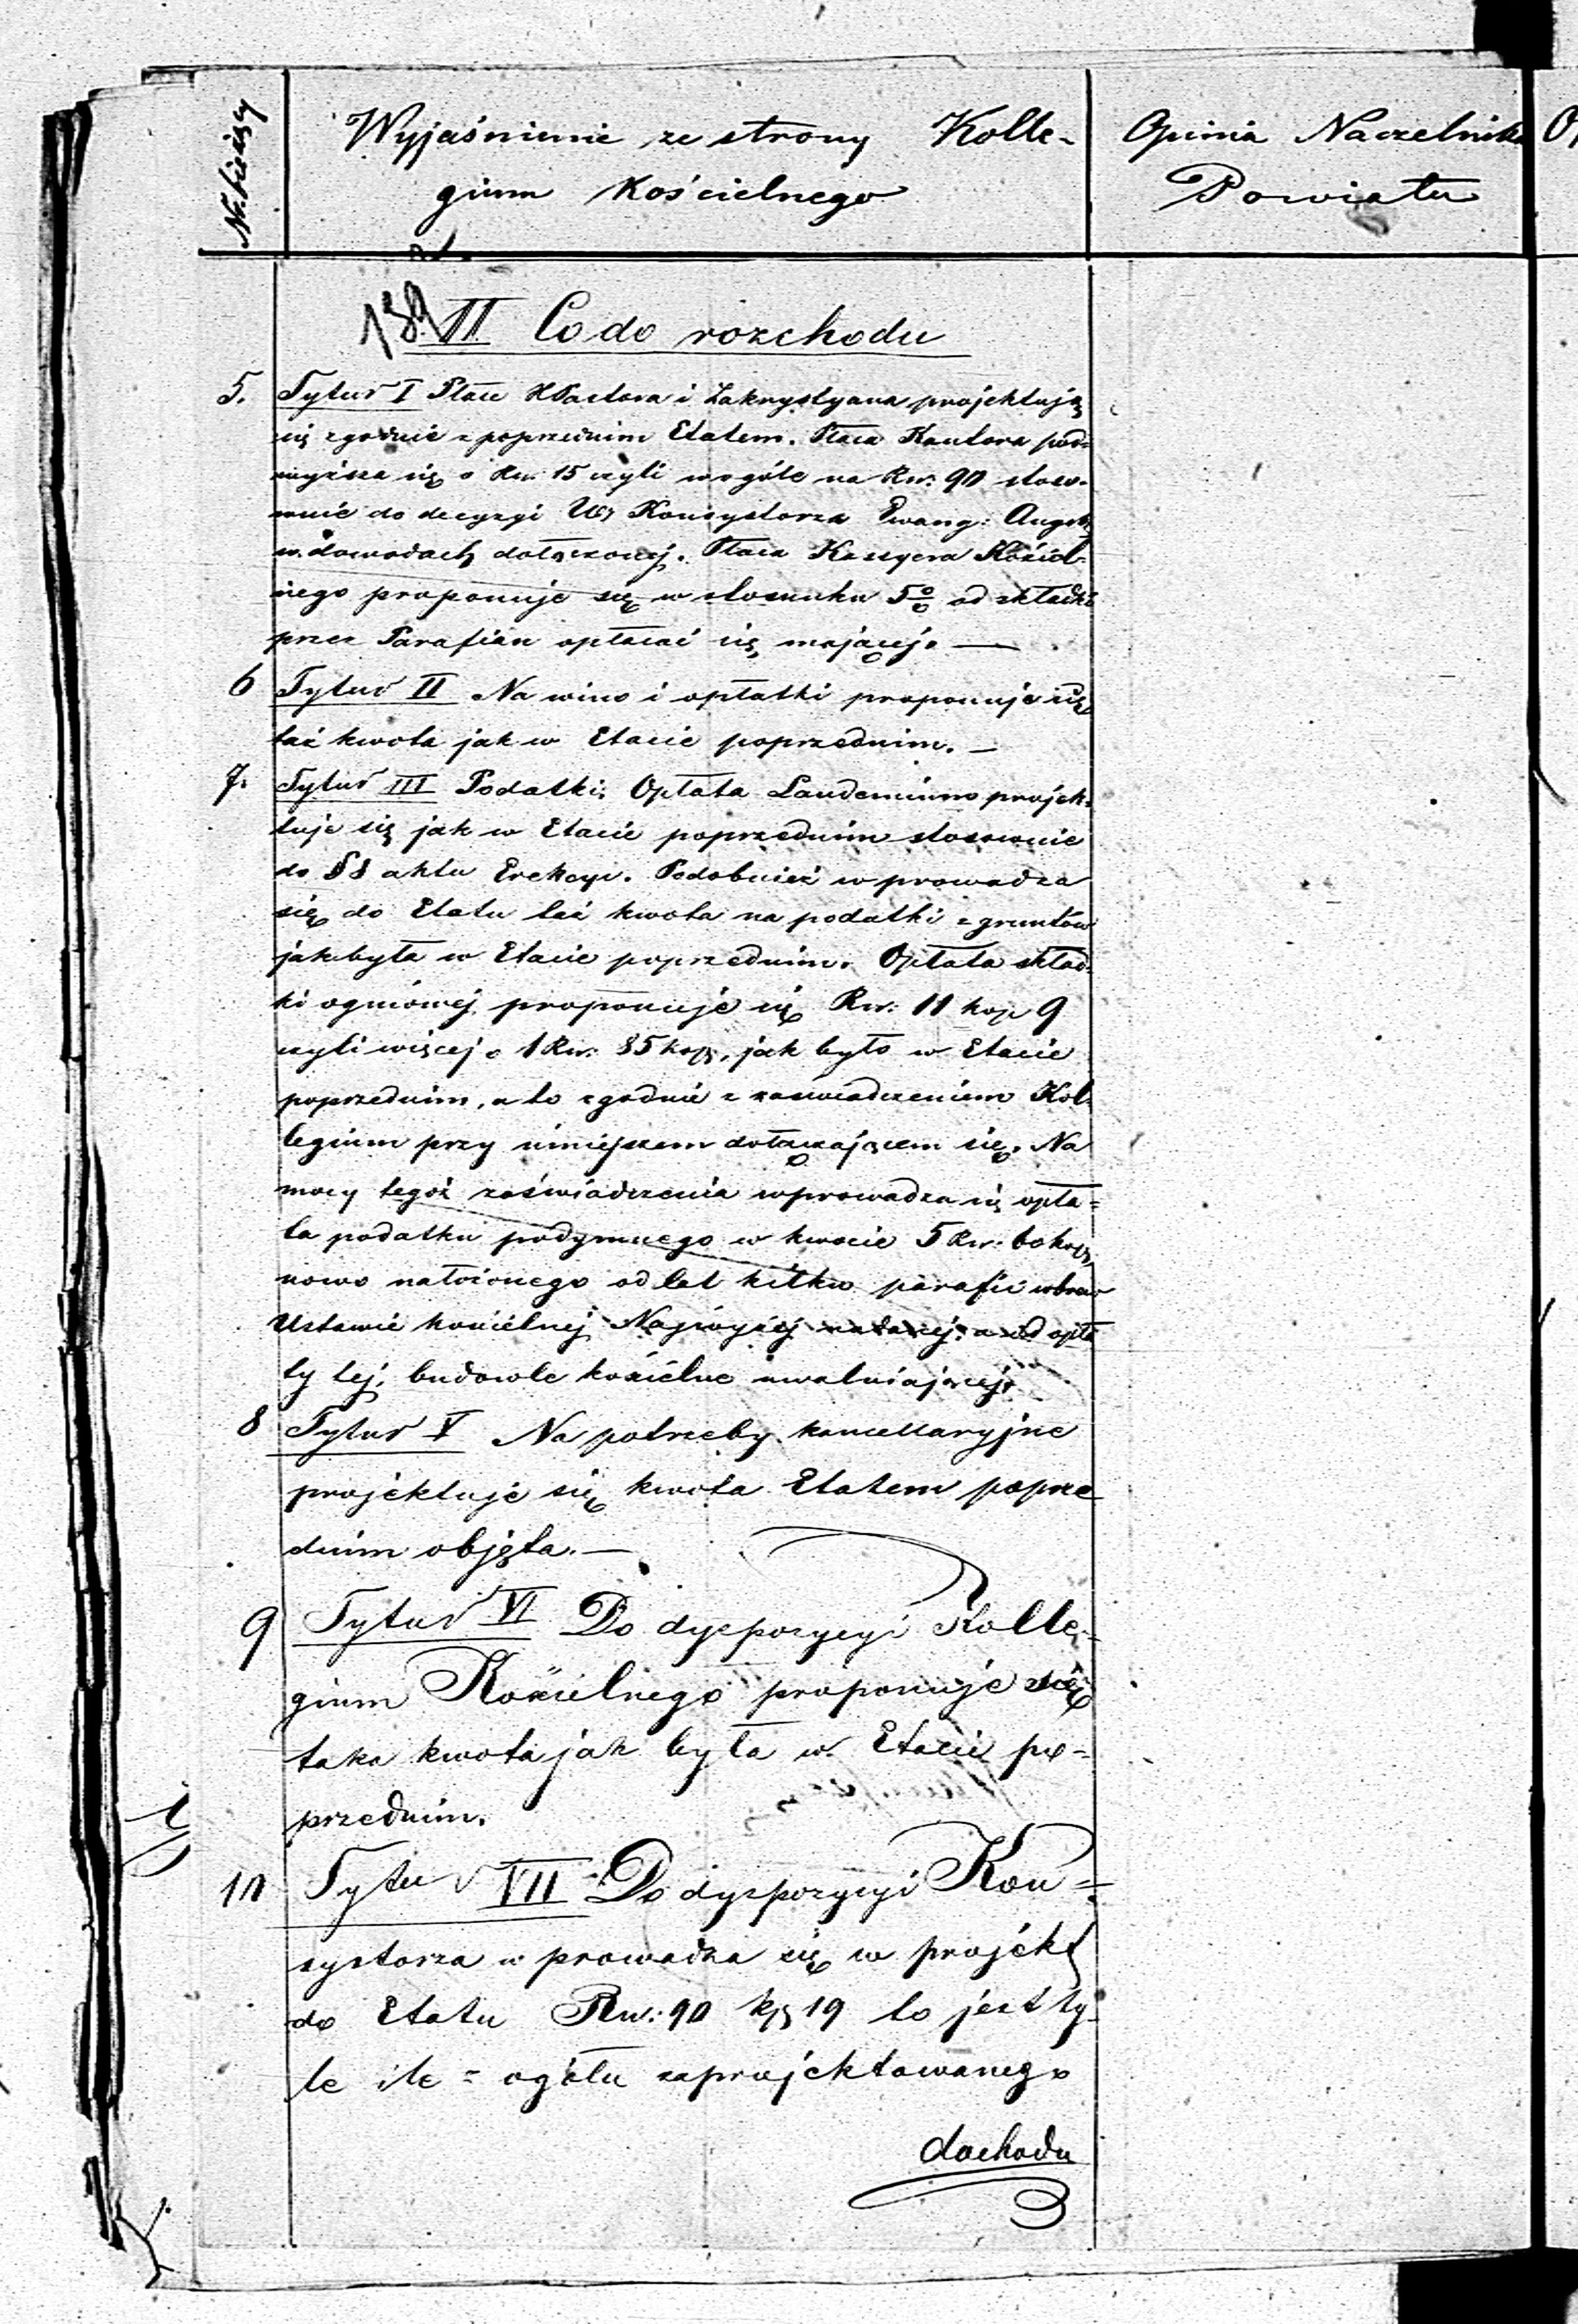 Nr. bieżący
Wyjaśnienie ze strony Kolle-
gium Kościelnego
Opinia Naczelnika
Powiatu
139
II Co do rozchodu
5. Tytuł I Płace Pastora i Zakrystyana projektują
się zgodnie z poprzednim Etatem. Płaca Kantora pod-
wyższa się o Rsr. 15 czyli w ogóle na Rsr. 90 stoso-
wnie do decyzyi Konsystorza Ewang: Augsb.
w dowodach dołączonej. Płaca Kassyera Kościel-
nego proponuje się w stosunku 5% od składki
przez Parafian opłacać się mającej. —
6 Tytuł II Na wino i opłatki proponuje się
taż kwota jak w Etacie poprzednim. —
7. Tytuł III Podatki. Opłata Laudemium projek-
tuje się jak w Etacie poprzednim stosownie
do § 8 aktu Erekcyi. Podobnież wprowadza
się do Etatu taż kwota na podatki z gruntów
jak była w Etacie poprzednim. Opłata skład-
ki ogniowej proponuje się Rsr: 11 kop 9
czyli więcej o 1 Rsr: 85 kop, jak było w Etacie
poprzednim, a to zgodnie z zaświadczeniem Kol-
legium przy niniejszem dołączającem się. Na
mocy tegoż zaświadczenia wprowadza się opła-
ta podatku podymnego w kwocie 5 Rsr: 60 kop,
nowo nałożonego od lat kilku parafii wbrew
Ustawie kościelnej Najwyżej nadanej: a od opła
ty tej, budowle kościelne uwalniającej.
8 Tytuł V Na potrzeby kancellaryjne
projektuje się kwota Etatem poprze
dnim objęta. —
9 Tytuł VI Do dyspozycyi Kolle-
gium Kościelnego proponuje się
taka kwota jak była w Etacie po-
przednim.
10 Tytuł VII Do dyspozycyi Kon-
systorza wprowadza się w projekt
do Etatu Rsr: 90 kp 19 to jest ty-
le ile z ogółu zaprojektowanego
dochodu